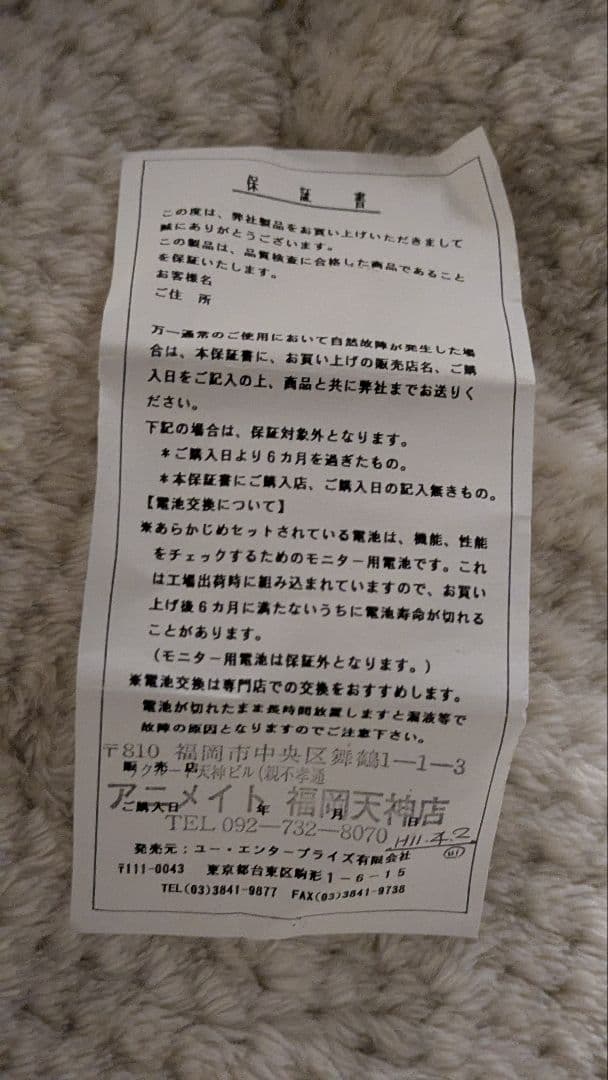 保証書
この度は、弊社製品をお買い上げいただきまして
誠にありがとうございます。
この製品は、品質検査に合格した商品であること
を保証いたします。
お客様名
ご住所
万一通常のご使用において自然故障が発生した場
合は、本保証書に、お買い上げの販売店名、ご購
入日をご記入の上、商品と共に弊社までお送りく
ださい。
下記の場合は、保証対象外となります。
＊ご購入日より6カ月を過ぎたもの。
＊本保証書にご購入店、ご購入日の記入無きもの。
【電池交換について】
※あらかじめセットされている電池は、機能、性能
をチェックするためのモニター用電池です。これ
は工場出荷時に組み込まれていますので、お買い
上げ後6カ月に満たないうちに電池寿命が切れる
ことがあります。
（モニター用電池は保証外となります。）
※電池交換は専門店での交換をおすすめします。
電池が切れたまま長時間放置しますと漏液等で
故障の原因となりますのでご注意下さい。
〒810 福岡市中央区舞鶴1－1－3
販売店
リクルート天神ビル(親不孝通
アニメイト 福岡天神店
ご購入日 年 月 日
TEL 092－732－8070
H11.4.2
発売元：ユー・エンタープライズ有限会社
〒111-0043 東京都台東区駒形1－6－15
TEL(03)3841-9877 FAX(03)3841-9738